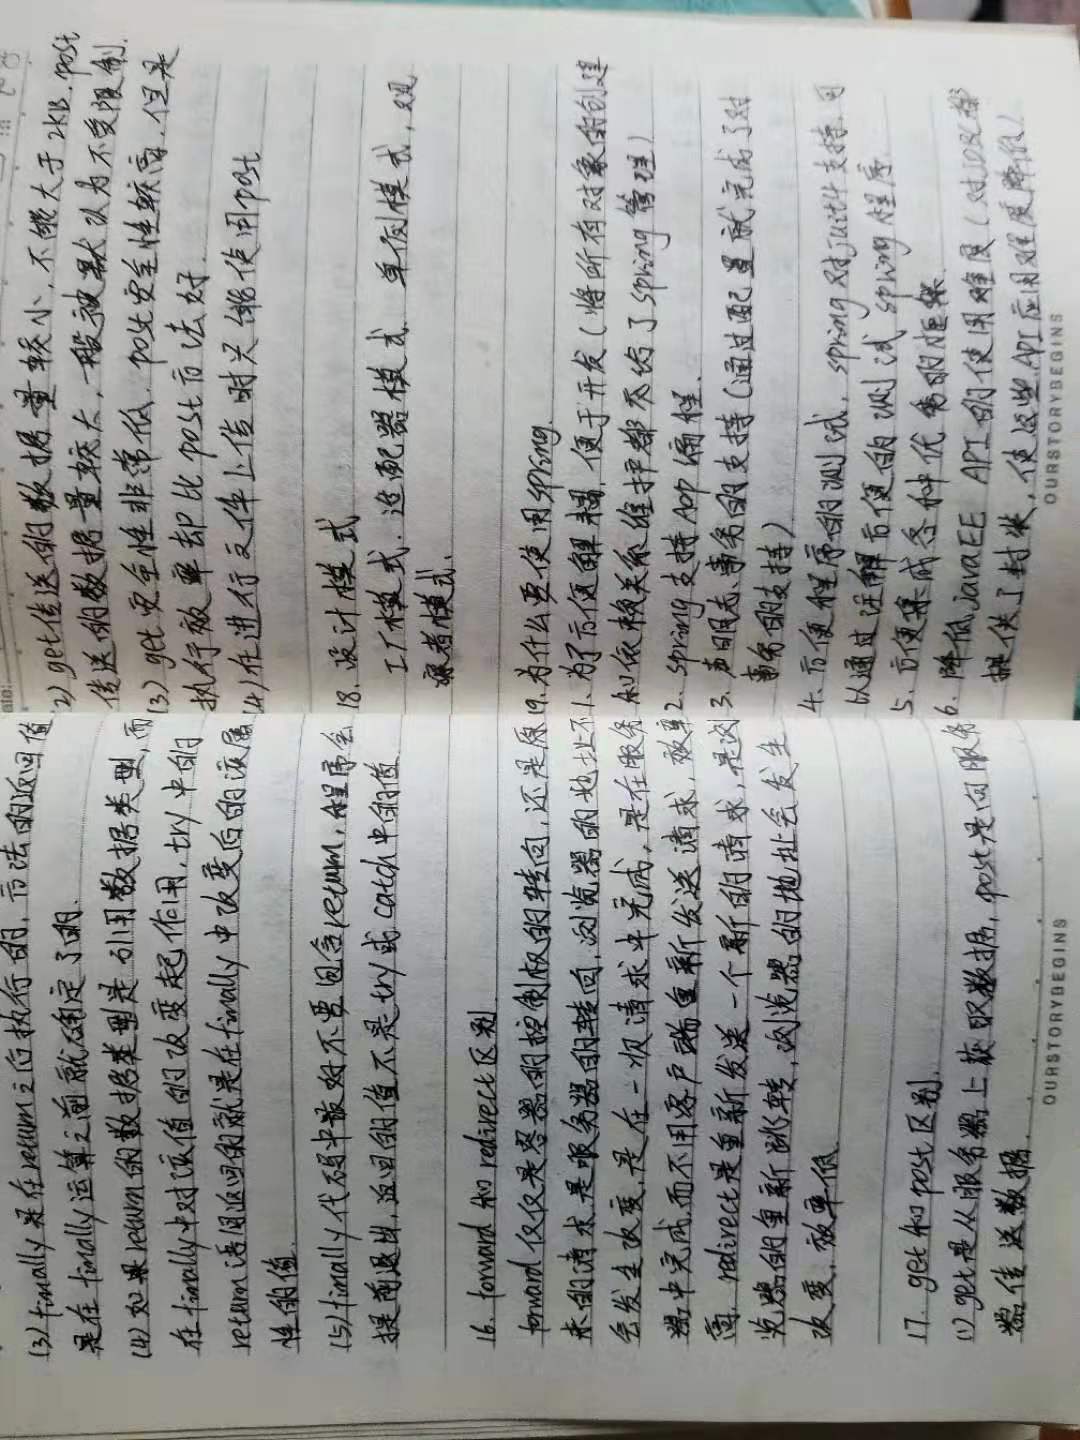 (3) finally是在return之后执行的，方法的返回值
是在finally运算之前就确定了的.
(4) 如果return的数据类型是引用数据类型，而
在finally中对该值的改变起作用，try中的
return语句返回的就是在finally中改变后的该属
性的值.
(5) finally代码中最好不要包含return，程序会
提前退出，返回的值不是try或catch中的值
16. forward和redirect区别
forward仅仅是容器的控制权的转向，还是原
来的请求，是服务器的转向，浏览器的地址不
会发生改变，是在一次请求中完成，是在服务
器中完成，而不用客户端重新发送请求，效率
高. redirect是重新发送一个新的请求，是浏
览器的重新跳转，浏览器的地址会发生
改变，效率低
17. get和post区别.
(1) get是从服务器上获取数据，post是向服务
器传送数据.
OURSTORYBEGINS
2) get传送的数据量较小，不能大于2KB. post
传送的数据量较大，一般被默认为不受限制.
(3) get安全性非常低，post安全性较高，但是
执行效率却比post方法好.
(4) 在进行文件上传时只能使用post
18. 设计模式
工厂模式，适配器模式，单例模式，观
察者模式.
19. 为什么要使用spring
1. 为了方便解耦，便于开发（将所有对象的创建
和依赖关系维护都交给了spring管理）
2. spring支持AOP编程.
3. 声明式事务的支持（通过配置就完成了对
事务的支持）
4. 方便程序的测试，spring对junit4支持，可
以通过注解方便的测试spring程序.
5. 方便集成各种优秀的框架.
6. 降低javaEE API的使用难度（对JDBC都
提供了封装，使这些API应用难度降低）
OURSTORYBEGINS